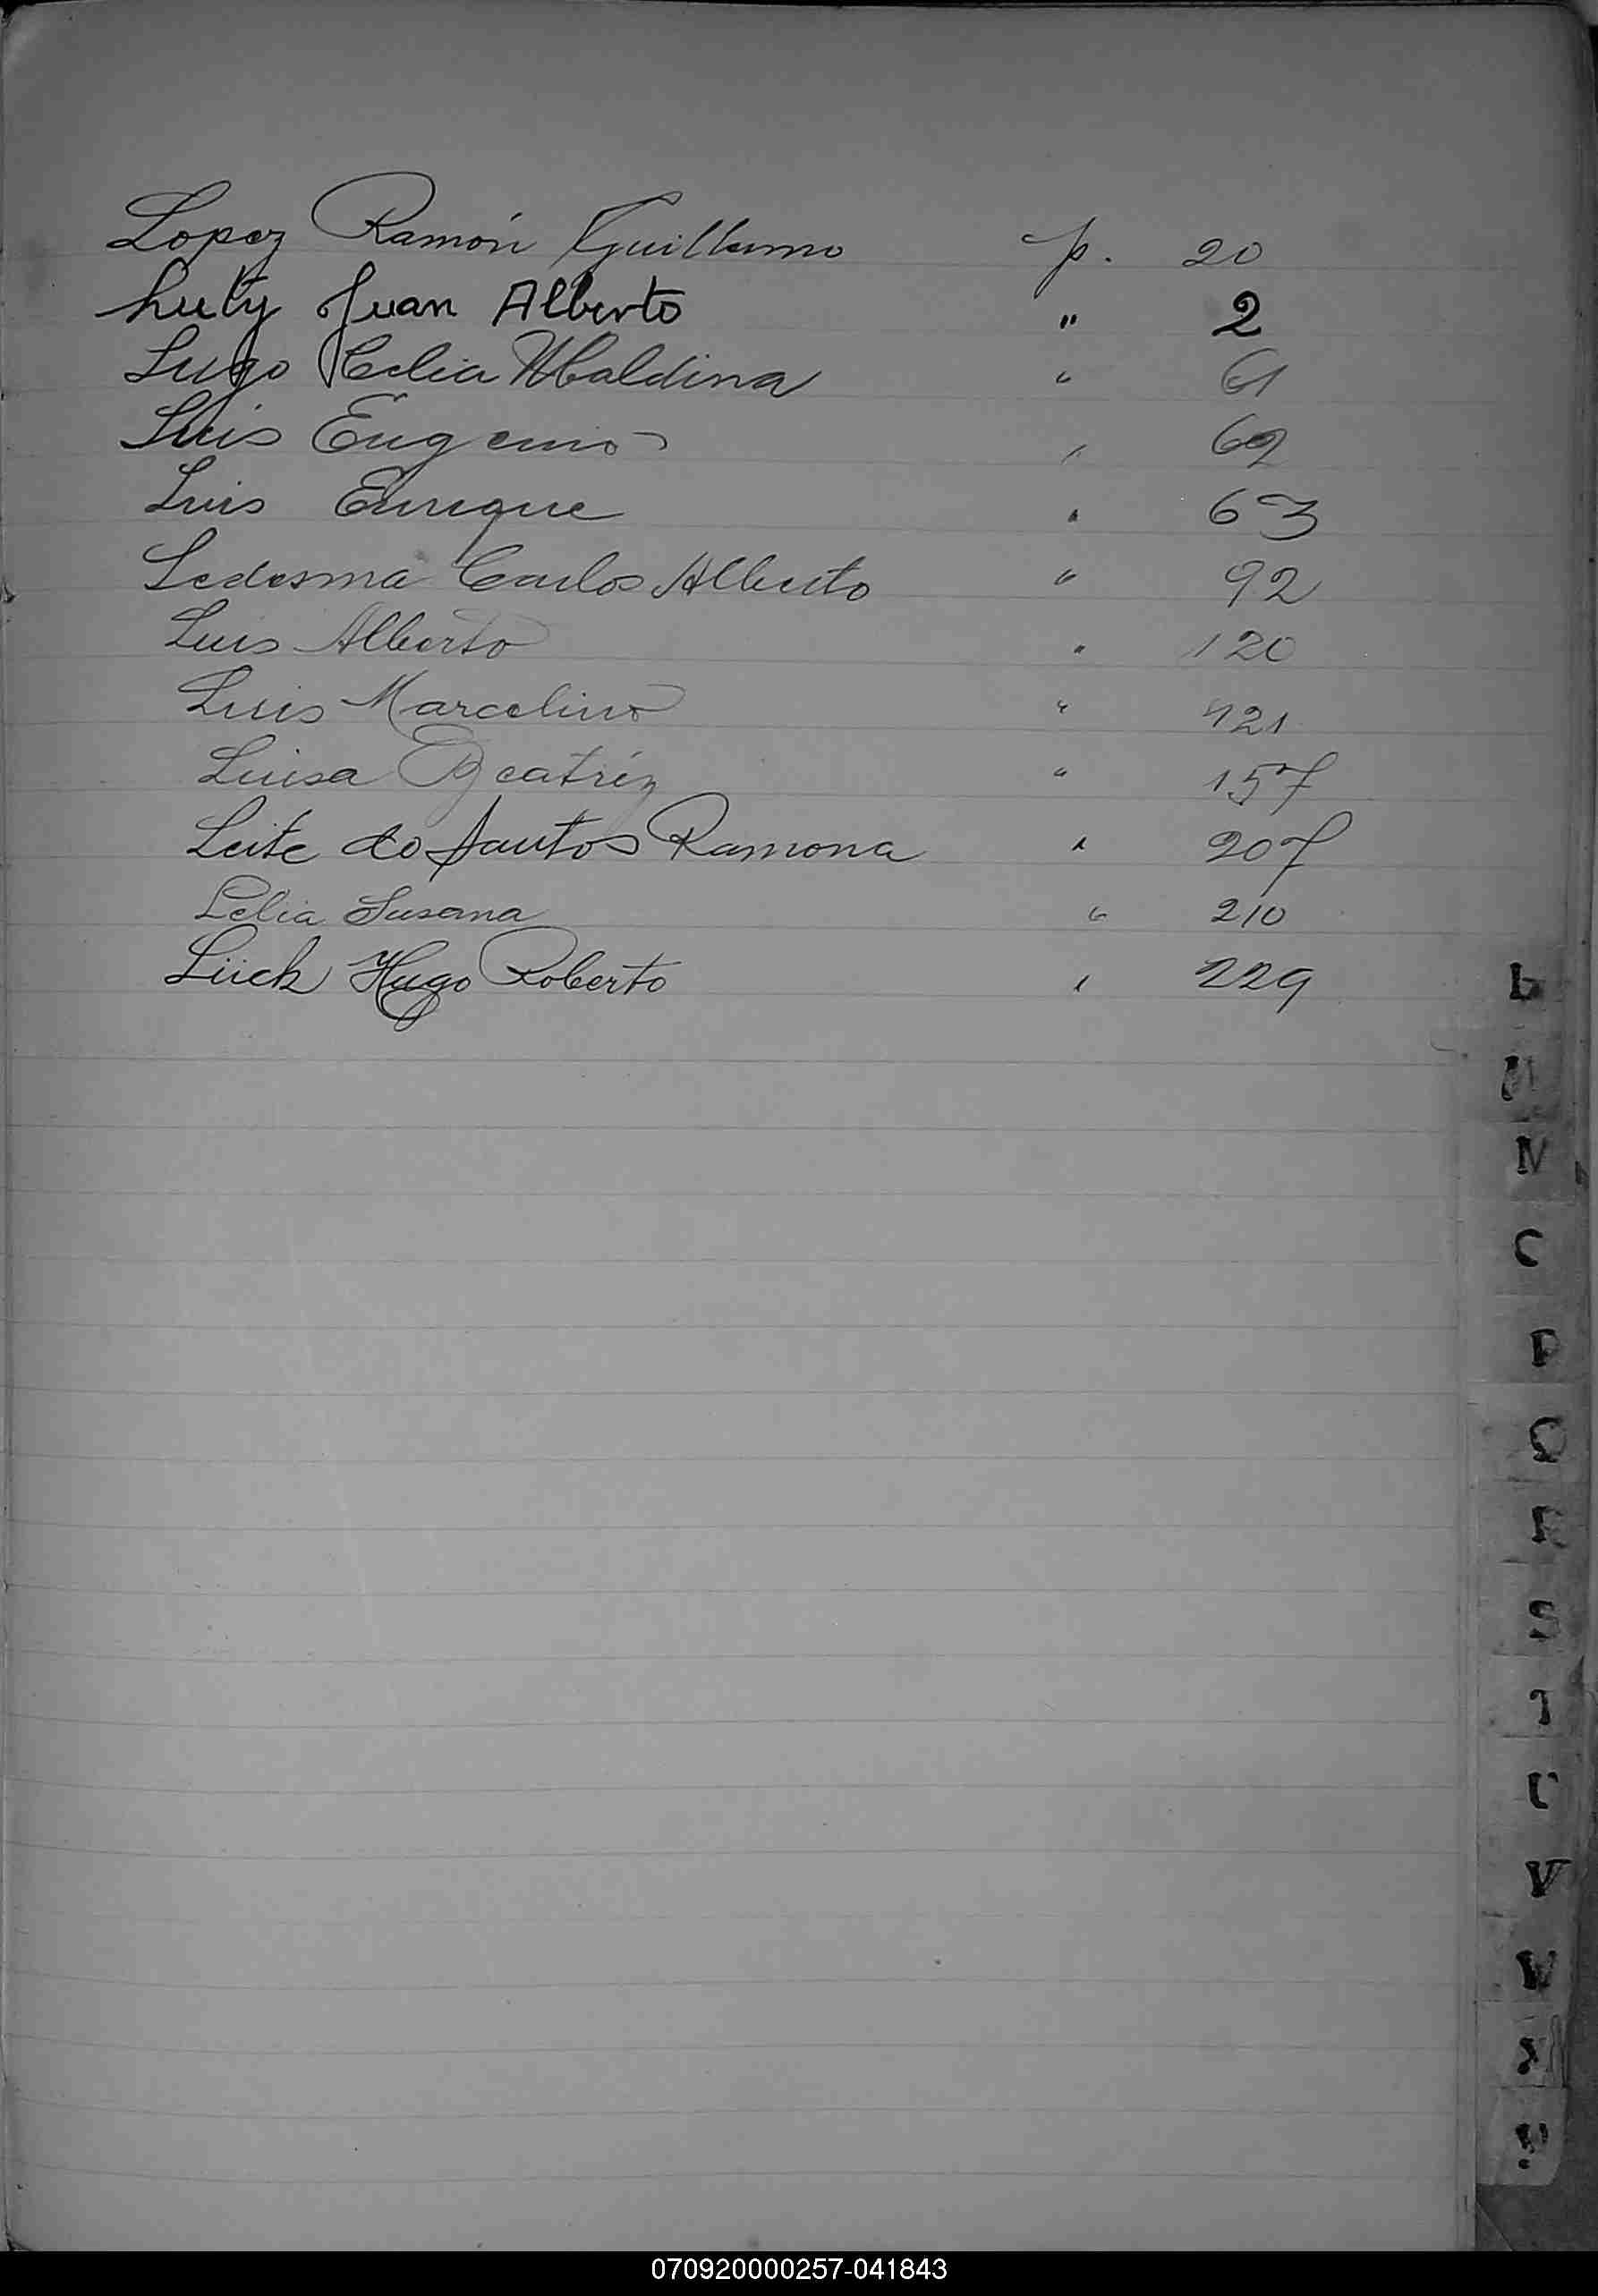 Lopez Ramón Guillermo p. 20
Luty Juan Alberto " 2
Lugo Celia Ubaldina " 61
Luis Eugenio " 62
Luis Enrique " 63
Ledesma Carlos Alberto " 92
Luis Alberto " 120
Luis Marcelino " 121
Luisa Beatríz " 157
Leite do Santos Ramona " 207
Lelia Susana " 210
Lück Hugo Roberto " 229
L
M
N
O
P
Q
R
S
T
U
V
W
070920000257-041843